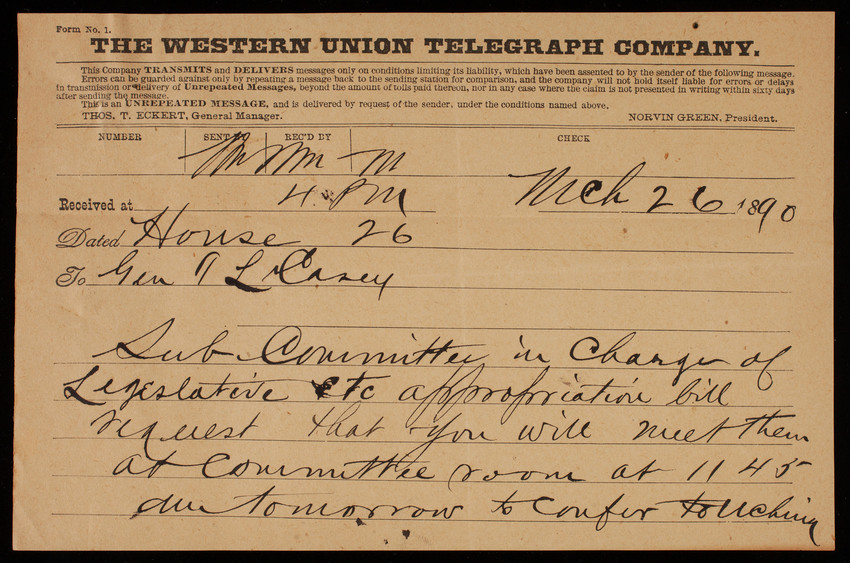 Form No. 1.
THE WESTERN UNION TELEGRAPH COMPANY.
This Company TRANSMITS and DELIVERS messages only on conditions limiting its liability, which have been assented to by the sender of the following message.
Errors can be guarded against only by repeating a message back to the sending station for comparison, and the company will not hold itself liable for errors or delays
in transmission or delivery of Unrepeated Messages, beyond the amount of tolls paid thereon, nor in any case where the claim is not presented in writing within sixty days
after sending the message.
This is an UNREPEATED MESSAGE, and is delivered by request of the sender, under the conditions named above.
THOS. T. ECKERT, General Manager. NORVIN GREEN, President.
NUMBER SENT BY REC'D BY CHECK
Received at 4 PM Mch 26 1890
Dated House 26
To Gen T L Casey
Sub Committee in Charge of
Legislative etc appropriation bill
request that you will meet them
at Committee room at 11 45
am tomorrow to confer touching